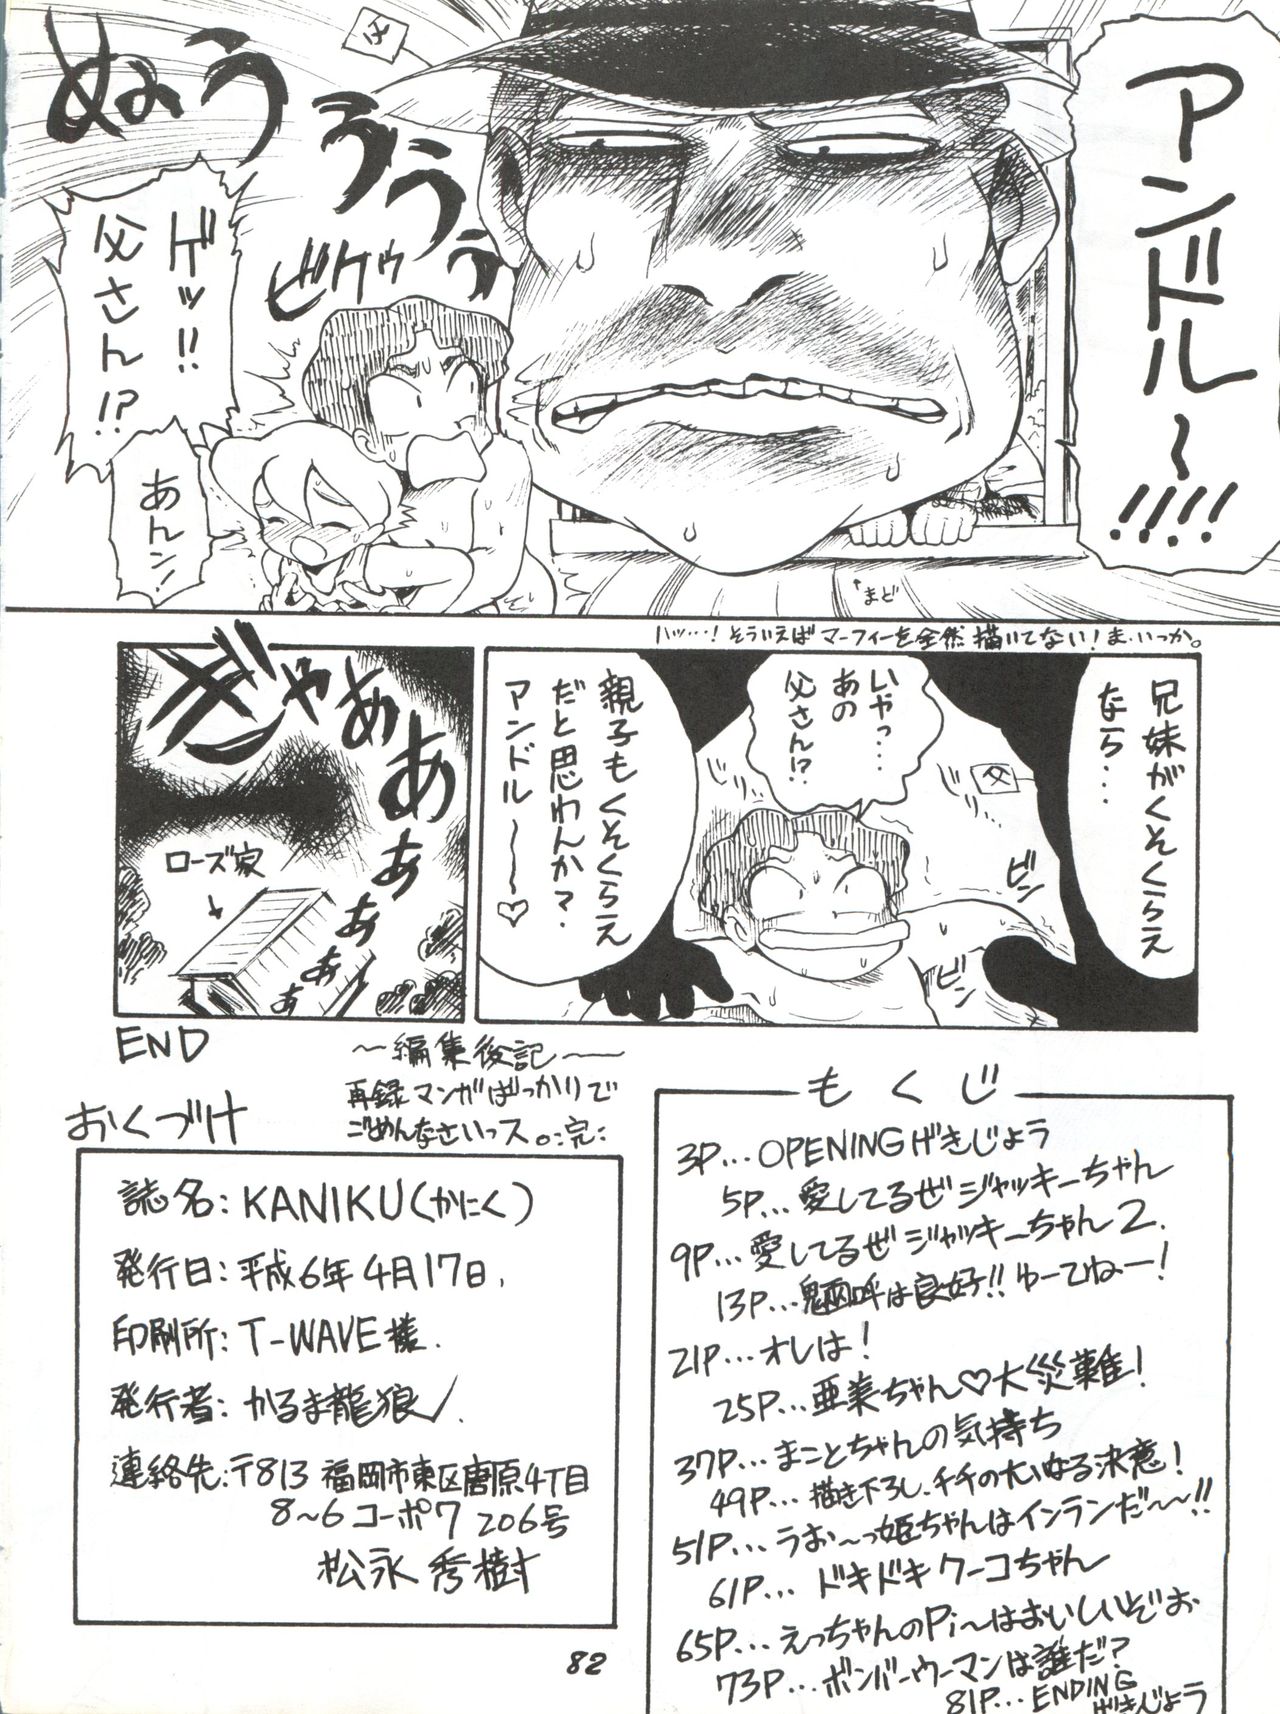 アンドル〜!!!!
ぬぅうぅうぅう
父
ゲッ!!
父さん!?
ビクゥ
あんン!
まど
ハッ…!そういえばマーフィーを全然描いてない!ま、いっか。
兄妹がくそくらえ
なら…
いやっ…
あの
父さん!?
父
親子もくそくらえ
だと思わんか?
アンドル〜〜♡
ビン
ビン
ぎゃああああああぁ
ローズ家
END
〜編集後記〜
再録マンガばっかりで
ごめんなさいっス。:完:
おくづけ
誌名:KANIKU(かにく)
発行日:平成6年4月17日.
印刷所:T-WAVE様.
発行者:かるま龍狼.
連絡先:〒813 福岡市東区唐原4丁目
8〜6 コーポワ 206号
松永 秀樹
もくじ
3P…OPENINGげきじょう
5P…愛してるぜジャッキーちゃん
9P…愛してるぜジャッキーちゃん2.
13P…魍呼は良好!!ゆーてねー!
21P…オレは!
25P…亜美ちゃん♡大災難!
37P…まことちゃんの気持ち
49P…描き下ろし、チチの大いなる決意!
51P…うお〜っ姫ちゃんはインランだ〜〜!!
61P…ドキドキワーコちゃん
65P…えっちゃんのPi〜はおいしいぞお
73P…ボンバーウーマンは誰だ?
81P…ENDING
げきじょう
82